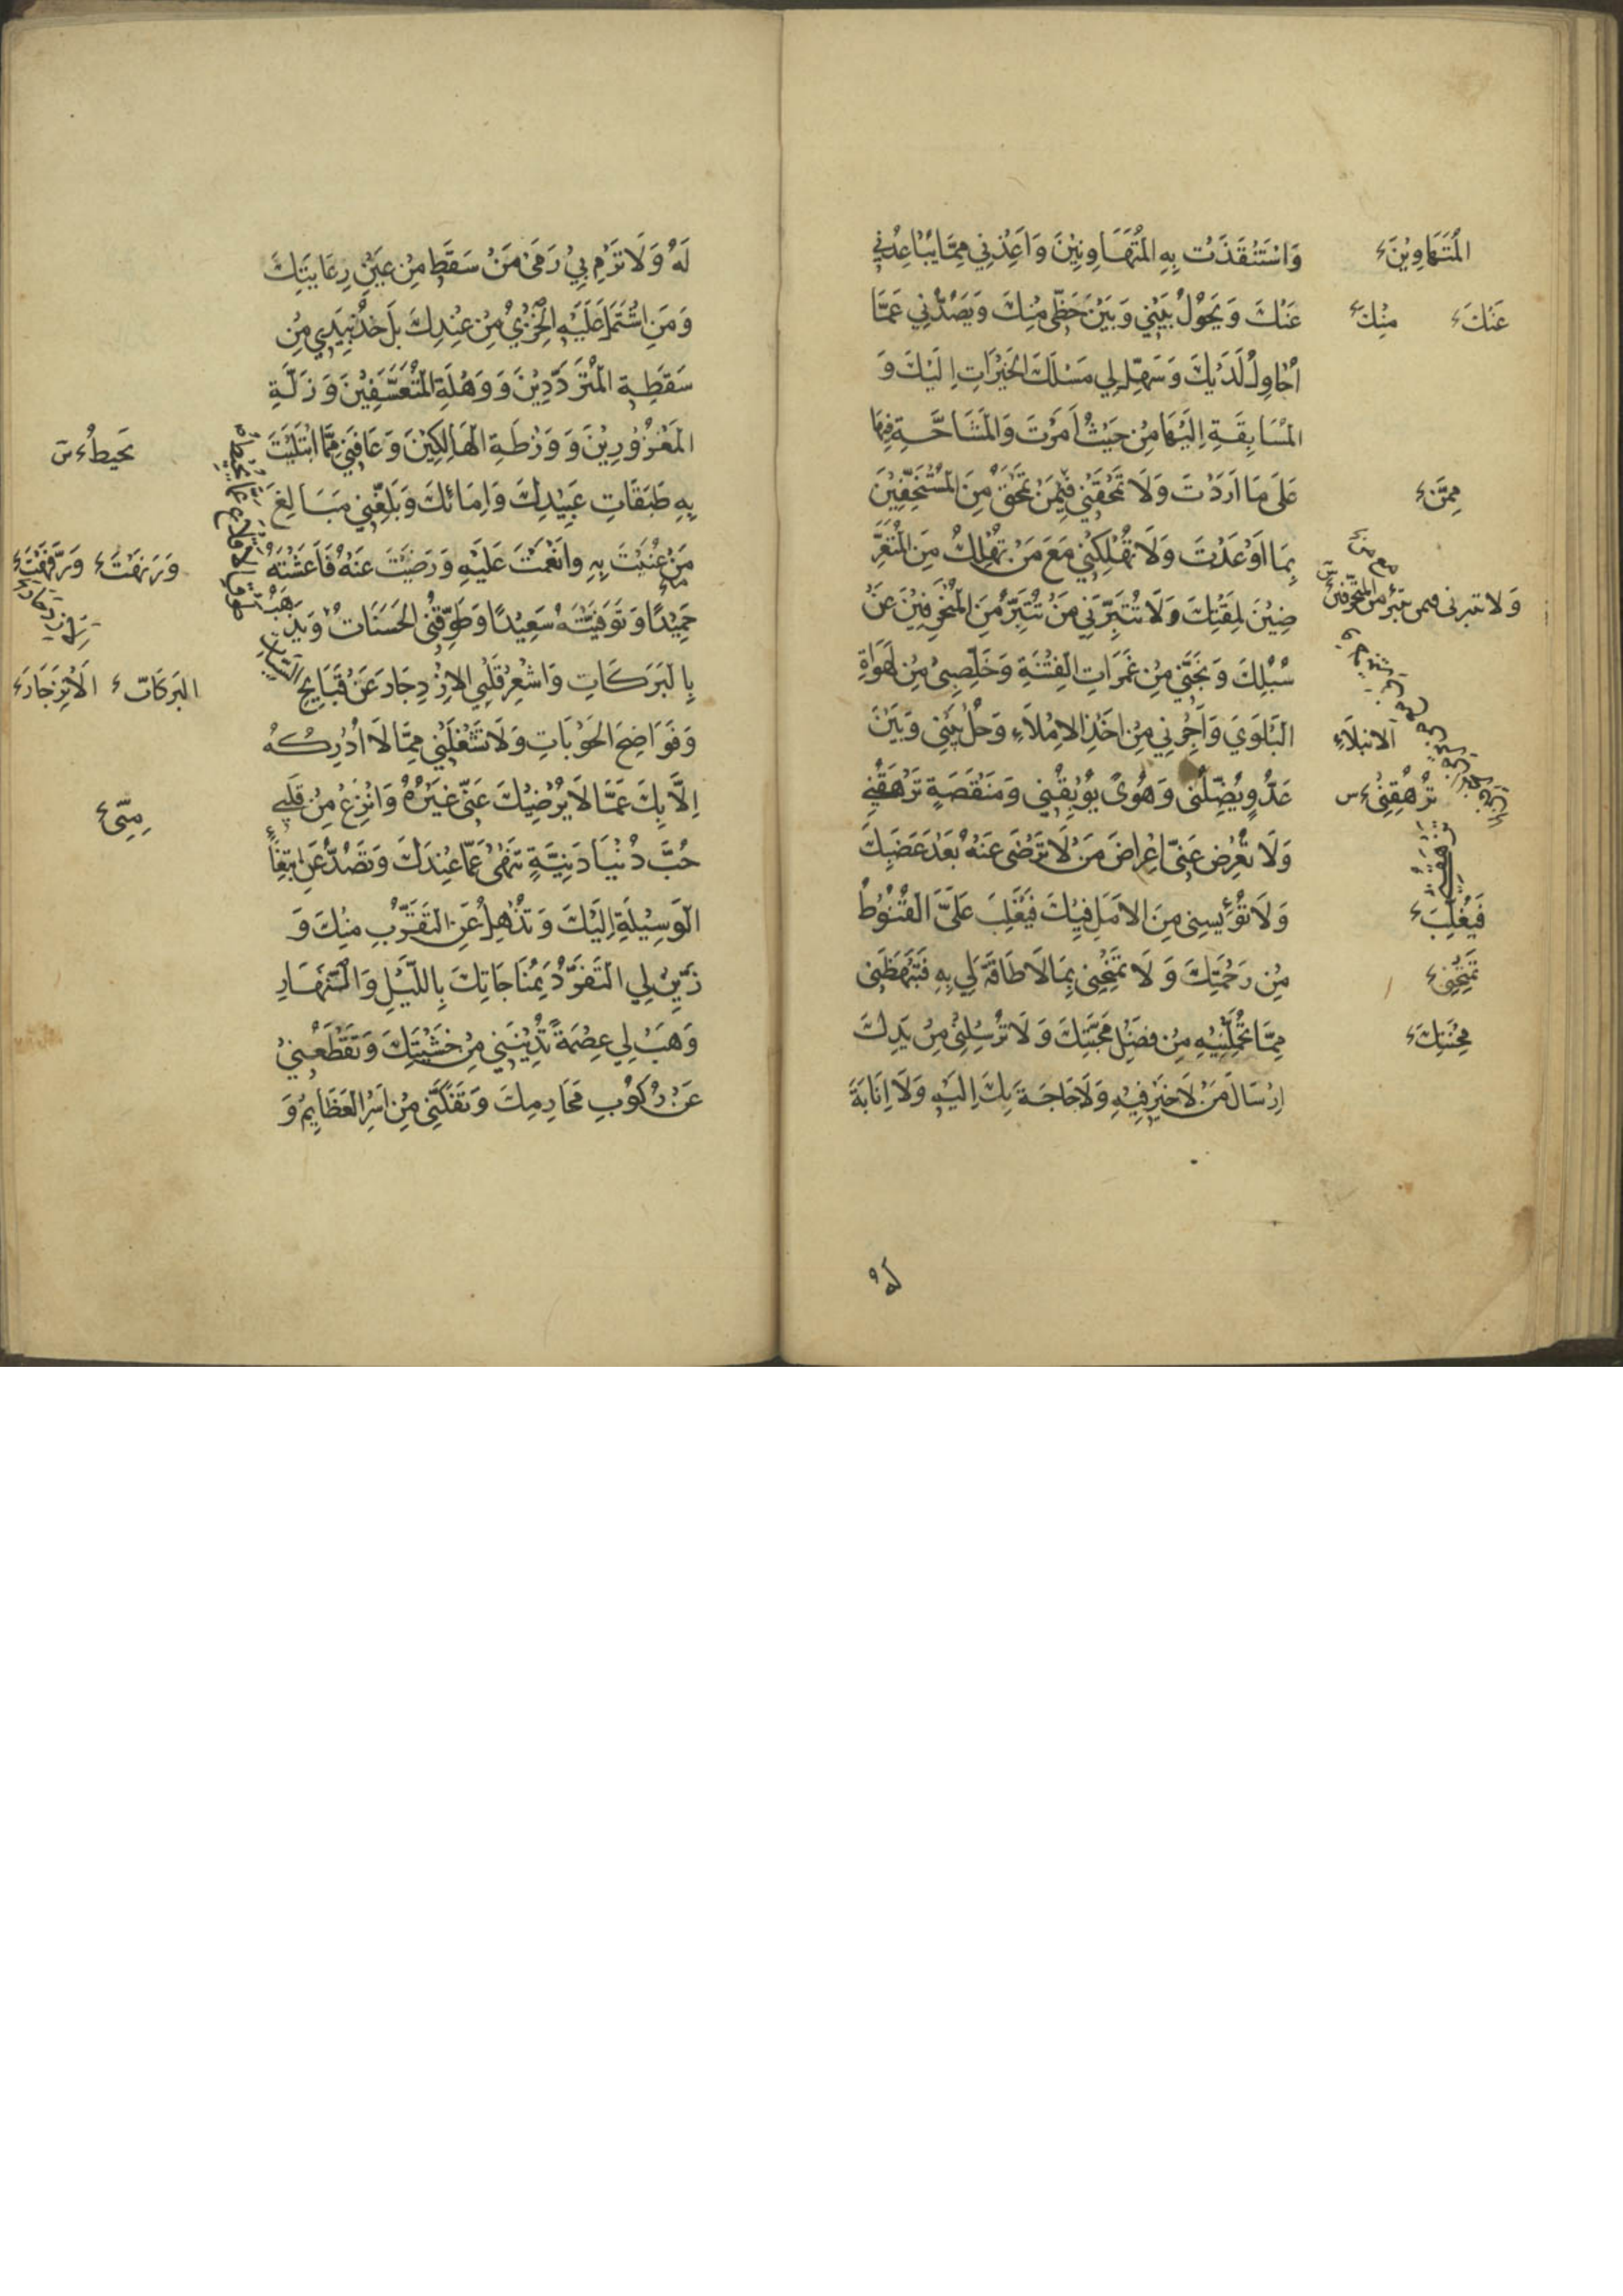 وَاسْتَنْقَذْتَ بِهِ الْمُتَهَاوِنِينَ وَاَعِذْنِي مِمَّا يُبَاعِدُنِي
عَنْكَ وَيَحُولُ بَيْنِي وَبَيْنَ حَظِّي مِنْكَ وَيَصُدُّنِي عَمَّا
اُحَاوِلُ لَدَيْكَ وَسَهِّلْ لِي مَسْلَكَ الْخَيْرَاتِ اِلَيْكَ وَ
الْمُسَابِقَةِ اِلَيْهَا مِنْ حَيْثُ اَمَرْتَ وَالْمَشَاحَّةِ فِيهَا
عَلَى مَا اَرَدْتَ وَلَا تَمْحَقْنِي فِيمَنْ تَمْحَقُ مِنَ الْمُسْتَخِفِّينَ
بِمَا اَوْعَدْتَ وَلَا تُهْلِكْنِي مَعَ مَنْ تُهْلِكُ مِنَ الْمُتَعَرِّ
ضِينَ لِمَقْتِكَ وَلَا تُتَبِّرْنِي مَنْ تُتَبِّرُ مِنَ الْمُنْحَرِفِينَ عَنْ
سُبُلِكَ وَنَجِّنِي مِنْ غَمَرَاتِ الْفِتْنَةِ وَخَلِّصْنِي مِنْ لَهَوَاةِ
الْبَلْوَي وَاَجِرْنِي مِنْ اَخْذِ الْاِمْلَاءِ وَحُلْ بَيْنِي وَبَيْنَ
عَدُوٍّ يُضِلُّنِي وَهَوًى يُوبِقُنِي وَمَنْقَصَةٍ تَرْهَقُنِي
وَلَا تُعْرِضْ عَنِّي اِعْرَاضَ مَنْ لَا تَرْضَى عَنْهُ بَعْدَ غَضَبِكَ
وَلَا تُؤْيِسْنِي مِنَ الْاَمَلِ فِيكَ فَيَغْلِبَ عَلَيَّ الْقُنُوطُ
مِنْ رَحْمَتِكَ وَلَا تَمْتَحِنِّي بِمَا لَا طَاقَةَ لِي بِهِ فَتَبْهَظَنِي
مِمَّا تُحَمِّلُنِيهِ مِنْ فَضْلِ مَحَبَّتِكَ وَلَا تُرْسِلْنِي مِنْ يَدِكَ
اِرْسَالَ مَنْ لَا خَيْرَ فِيهِ وَلَا حَاجَةَ بِكَ اِلَيْهِ وَلَا اِنَابَةَ
لَهُ
الْمُتَهَاوِينَ ء
عَنْكَ ء
مِنْكَ ء
مِمَّنْ ء
وَلَا تتبرنى فيمن تتبر من المنحرفين
الابتلاء
تُرْهِقُنِي ء س
فَيُغْلِبَ ء
تَمْنَحْنِي ء
مِحْنَتِكَ ء
لَهُ وَلَا تَرْمِ بِي رَمْىَ مَنْ سَقَطَ مِنْ عَيْنِ رِعَايَتِكَ
وَمَنِ اشْتَمَلَ عَلَيْهِ الْخِزْيُ مِنْ عِنْدِكَ بَلْ خُذْ بِيَدِي مِنْ
سَقْطَةِ الْمُتَرَدِّدِينَ وَوَهْلَةِ الْمُتَعَسِّفِينَ وَزَلَّةِ
الْمَغْرُورِينَ وَوَرْطَةِ الْهَالِكِينَ وَعَافِنِي مِمَّا ابْتَلَيْتَ
بِهِ طَبَقَاتِ عَبِيدِكَ وَاِمَائِكَ وَبَلِّغْنِي مَبَالِغَ
مَنْ عُنِيتَ بِهِ وَانْعَمْتَ عَلَيْهِ وَرَضِيتَ عَنْهُ فَاَعَشْتَهُ
حَمِيدًا وَتَوَفَّيْتَهُ سَعِيدًا وَطَوِّقْنِي
بِالْبَرَكَاتِ وَاَشْعِرْ قَلْبِي الْاِزْدِجَارَ عَنْ قَبَايِحِ السَّيِّئَاتِ
وَفَوَاضِحِ الْحَوْبَاتِ وَلَا تَشْغَلْنِي مِمَّا لَا اُدْرِكُهُ
اِلَّا بِكَ عَمَّا لَا يُرْضِيكَ عَنِّي غَيْرُهُ وَانْزِعْ مِنْ قَلْبِي
حُبَّ دُنْيَا دَنِيَّةٍ تَنْهَى عَمَّا عِنْدَكَ وَتَصُدُّ عَنِ ابْتِغَاءِ
الْوَسِيلَةِ اِلَيْكَ وَتُذْهِلُ عَنِ التَّقَرُّبِ مِنْكَ وَ
زَيِّنْ لِي التَّفَرُّدَ بِمُنَاجَاتِكَ بِاللَّيْلِ وَالنَّهَارِ
وَهَبْ لِي عِصْمَةً تُدْنِينِي مِنْ خَشْيَتِكَ وَتَقْطَعُنِي
عَنْ رُكُوبِ مَحَارِمِكَ وَتَفُكَّنِي مِنْ اَسْرِ الْعَظَايِمِ وَ
يَحْيطُ ء س
وَرَفَّهْتَ ء
الْبَرَكَاتَ ء
مِنِّى ء